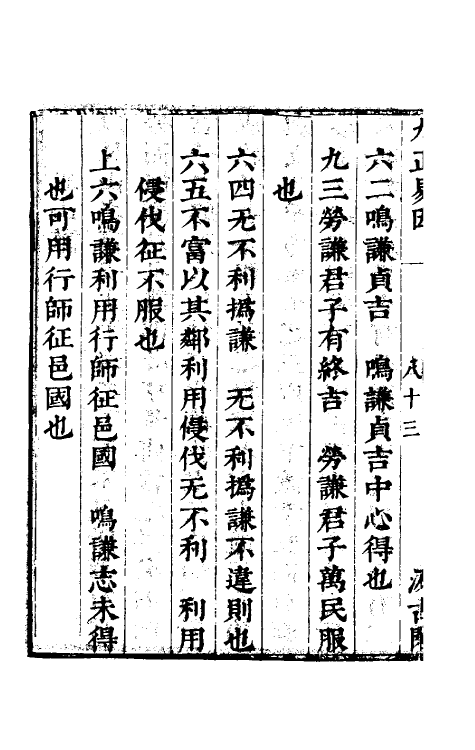 九正易因
八十三
汲古閣
六二鳴謙貞吉　鳴謙貞吉中心得也
九三勞謙君子有終吉　勞謙君子萬民服
也
六四无不利撝謙　无不利撝謙不違則也
六五不富以其鄰利用侵伐无不利　利用
侵伐征不服也
上六鳴謙利用行師征邑國　鳴謙志未得
也可用行師征邑國也